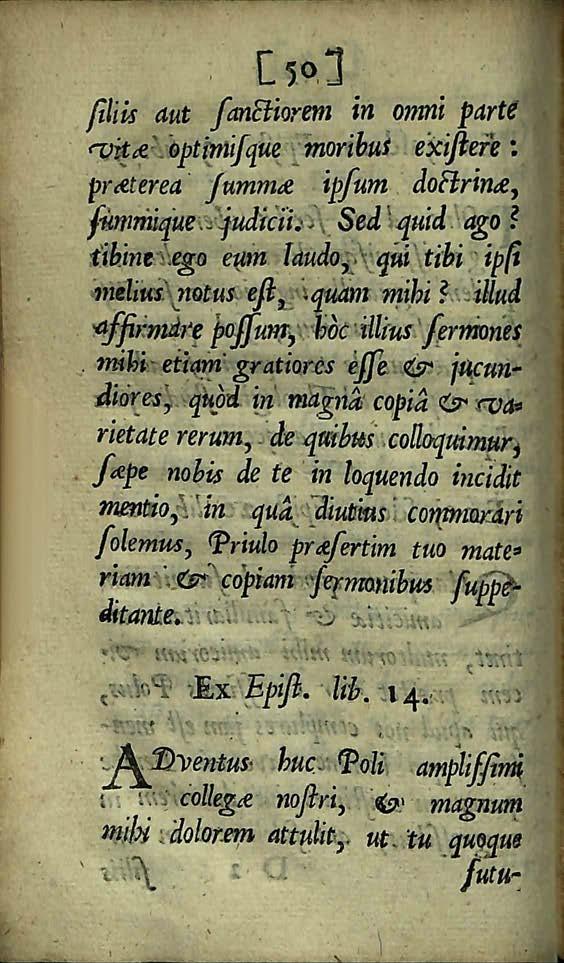 [ 50 ]
ſiliis aut ſanctiorem in omni parte
vitæ optimiſque moribus exiſtere :
præterea ſummæ ipſum doctrinæ,
ſummique judicii. Sed quid ago ?
tibine ego eum laudo, qui tibi ipſi
melius notus eſt, quam mihi ? illud
affirmare poſſum, hôc illius ſermones
mihi etiam gratiores eſſe & jucun-
diores, quòd in magnâ copiâ & va-
rietate rerum, de quibus colloquimur,
ſæpe nobis de te in loquendo incidit
mentio, in quâ diutius commorari
ſolemus, Priulo præſertim tuo mate-
riam & copiam ſermonibus ſuppe-
ditante.
Ex Epiſt. lib. 14.
ADventus huc Poli ampliſſimi
collegæ noſtri, & magnum
mihi dolorem attulit, ut tu quoque
futu-